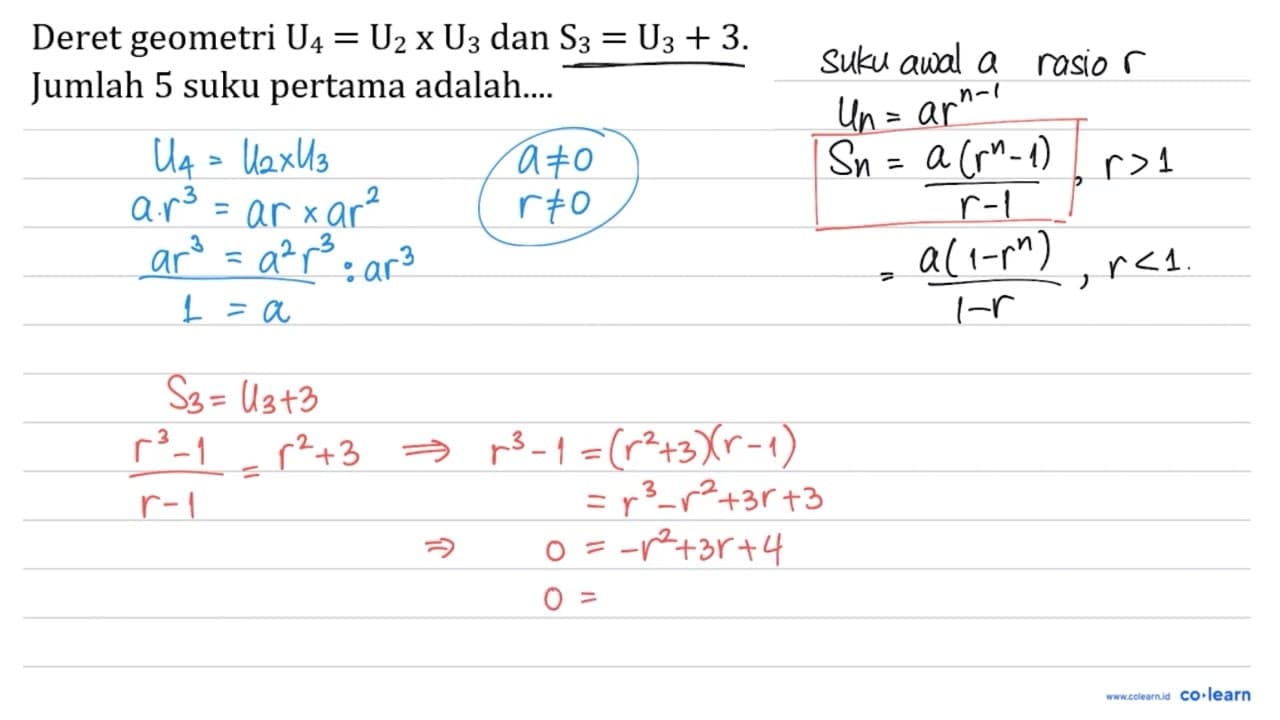 Deret geometri U₄ = U₂ x U₃ dan S₃ = U₃ + 3.
Jumlah 5 suku pertama adalah....
suku awal a rasio r
Uₙ = arⁿ⁻¹
Sₙ = a(rⁿ-1)/r-1, r>1
= a(1-rⁿ)/1-r, r<1.
U₄ = U₂xU₃
a.r³ = ar x ar²
ar³ = a²r³ : ar³
1 = a
a≠0
r≠0
S₃ = U₃+3
r³-1/r-1 = r²+3 ⇒ r³-1 = (r²+3)(r-1)
= r³-r²+3r+3
⇒ 0 = -r²+3r+4
0 =
www.colearn.id co·learn